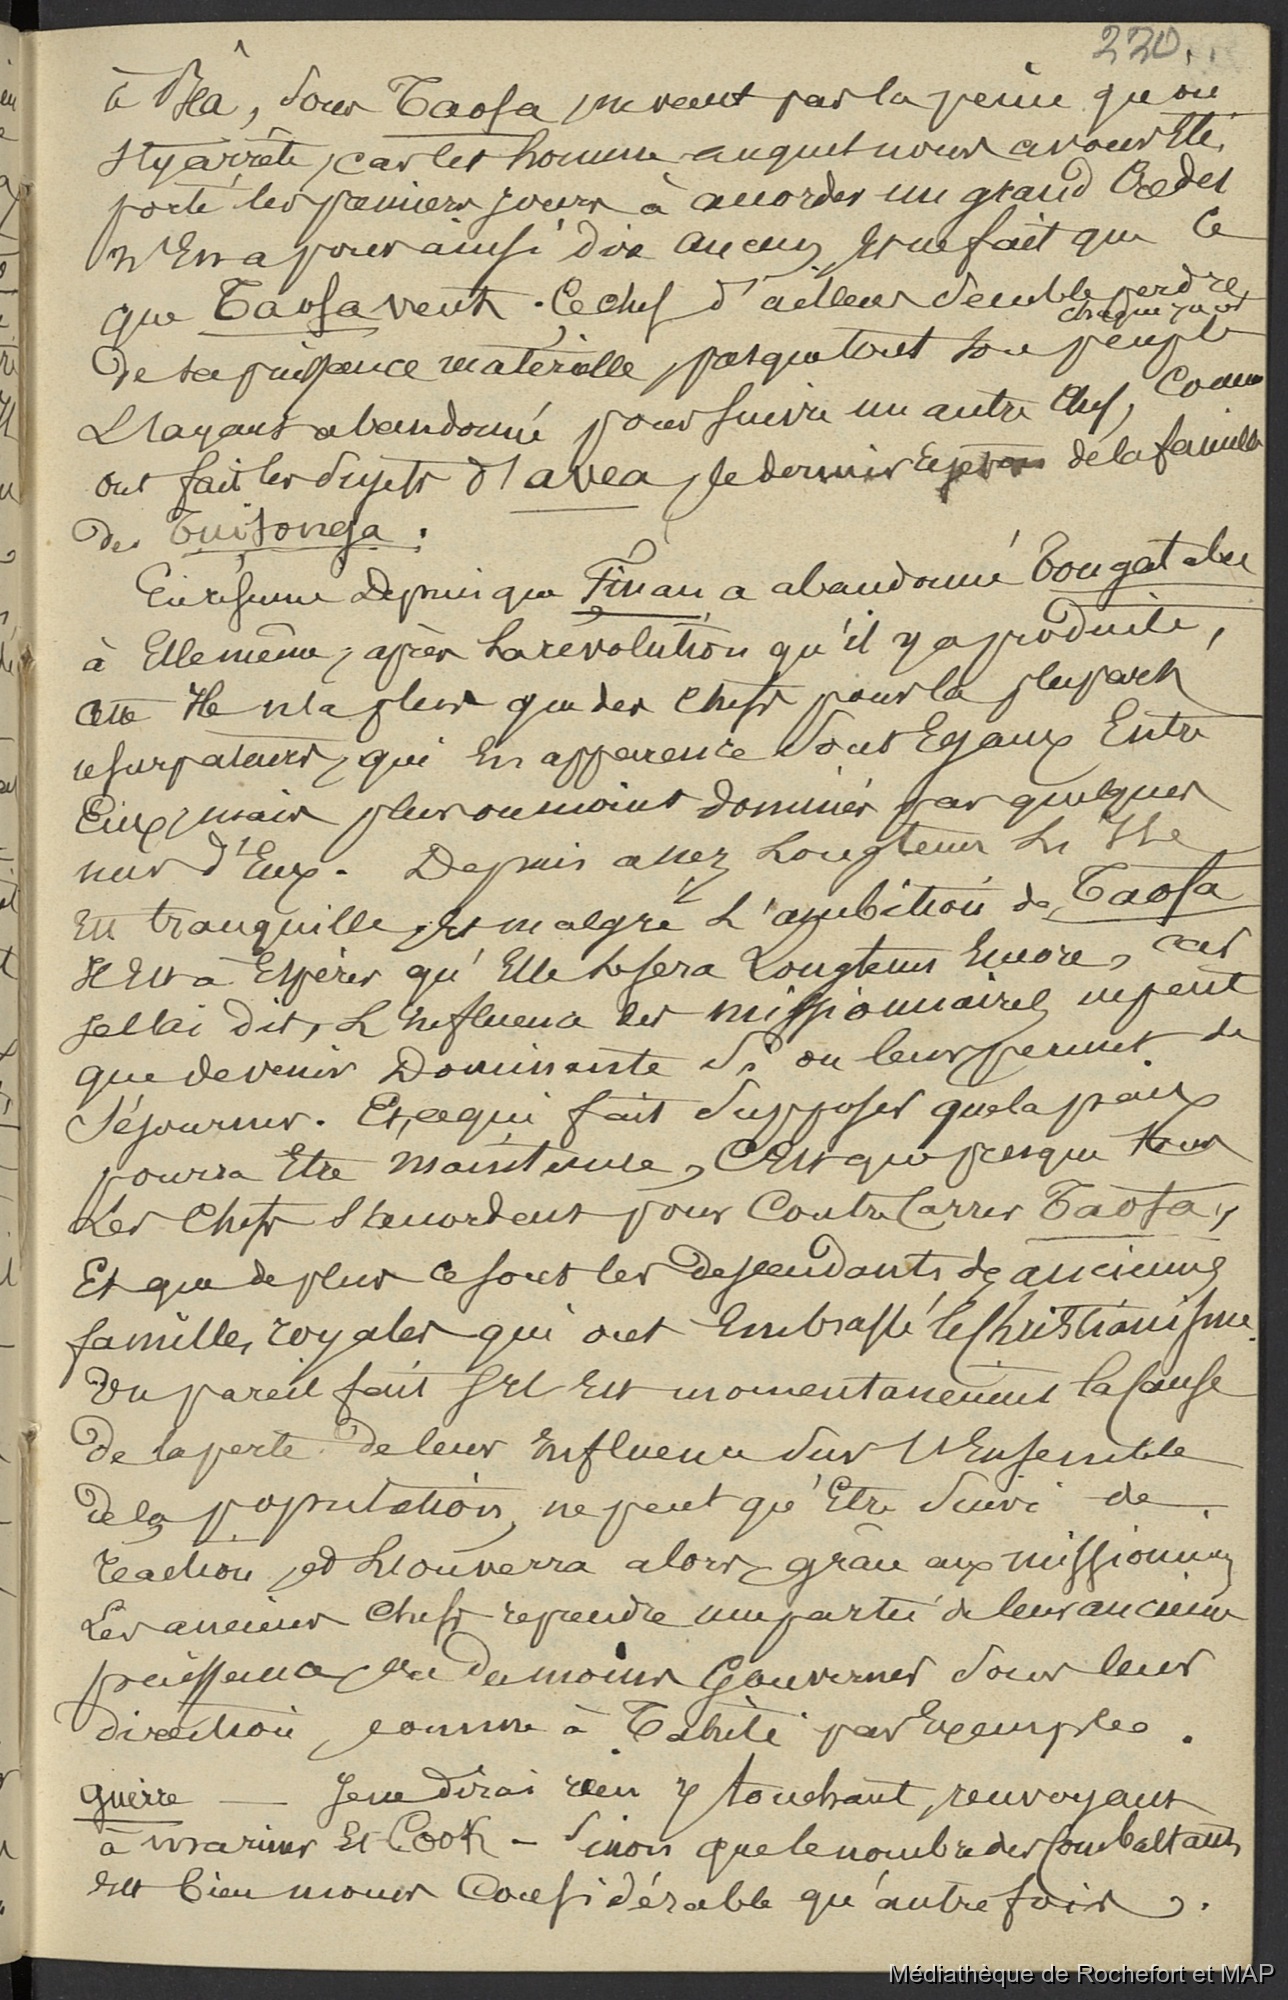 220.
à Béa, sous Taofa, ne vaut pas la peine qu'on
s'y arrête, car les homme auquel nous avons Eté
porté les premiers jours à accorder un grand Credit
n'En a pour ainsi dire aucun, Et ne fait que Ce
que Taofa veut. Ce chef d'ailleurs semble perdre
chaque jour
de sa puissance matérielle, presque tout son peuple
L'ayant abandonné pour suivre un autre Chef, Comme
ont fait les sujets d'avea, le dernier de la famille
des Tuitonga.
En résumé Depuis que Finau a abandonné Tongatabu
à Elle même, après La révolution qu'il y a produite,
cette Ile n'a plus que des Chefs pour la plupart
usurpateurs, qui En apparence sont Egaux Entre
Eux, mais plus ou moins dominés par quelques
uns d'Eux. Depuis assez Longtems L'Ile
Est tranquille, Et malgré L'ambition de Taofa
Il Est à Espérer qu'Elle le sera Longtems Encore, car
je l'ai dit, L'Influence des missionnaires ne peut
que devenir Dominante si on leur permet de
séjourner. Et, ce qui fait supposer que la paix
pourra Etre maintenue, C'Est que presque tous
Les Chefs s'accordent pour Contrecarrer Taofa,
Et que de plus ce sont les descendants des anciennes
familles royales qui ont Embrassé le Christianisme.
Un pareil fait s'il Est momentanément la Cause
De la perte de leur Influence sur L'Ensemble
de la population, ne peut qu'Etre suivi de
réaction, et L'on verra alors, grâce aux missionnaires
Les anciens Chefs reprendre une partie de leur ancienne
puissance, ou du moins Gouverner sous leur
direction, comme à Tahiti par Exemple.
guerre — Je ne dirai rien y touchant, renvoyant
à mariner Et Cook — sinon que le nombre des Combattants
Est bien moins Considérable qu'autrefois.
Médiathèque de Rochefort et MAP